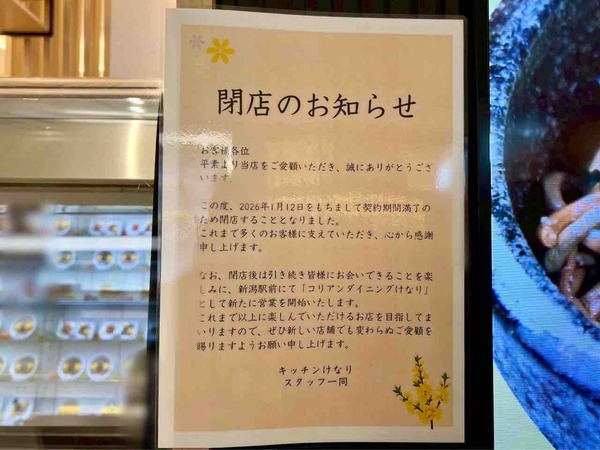 閉店のお知らせ
お客様各位
平素より当店をご愛顧いただき、誠にありがとうござ
います。
この度、2026年1月12日をもちまして契約期間満了の
ため閉店することとなりました。
これまで多くのお客様に支えていただき、心から感謝
申し上げます。
なお、閉店後は引き続き皆様にお会いできることを楽
しみに、新潟駅前にて「コリアンダイニングけなり」
として新たに営業を開始いたします。
これまで以上に楽しんでいただけるお店を目指してま
いりますので、ぜひ新しい店舗でも変わらぬご愛顧を
賜りますようお願い申し上げます。
キッチンけなり
スタッフ一同